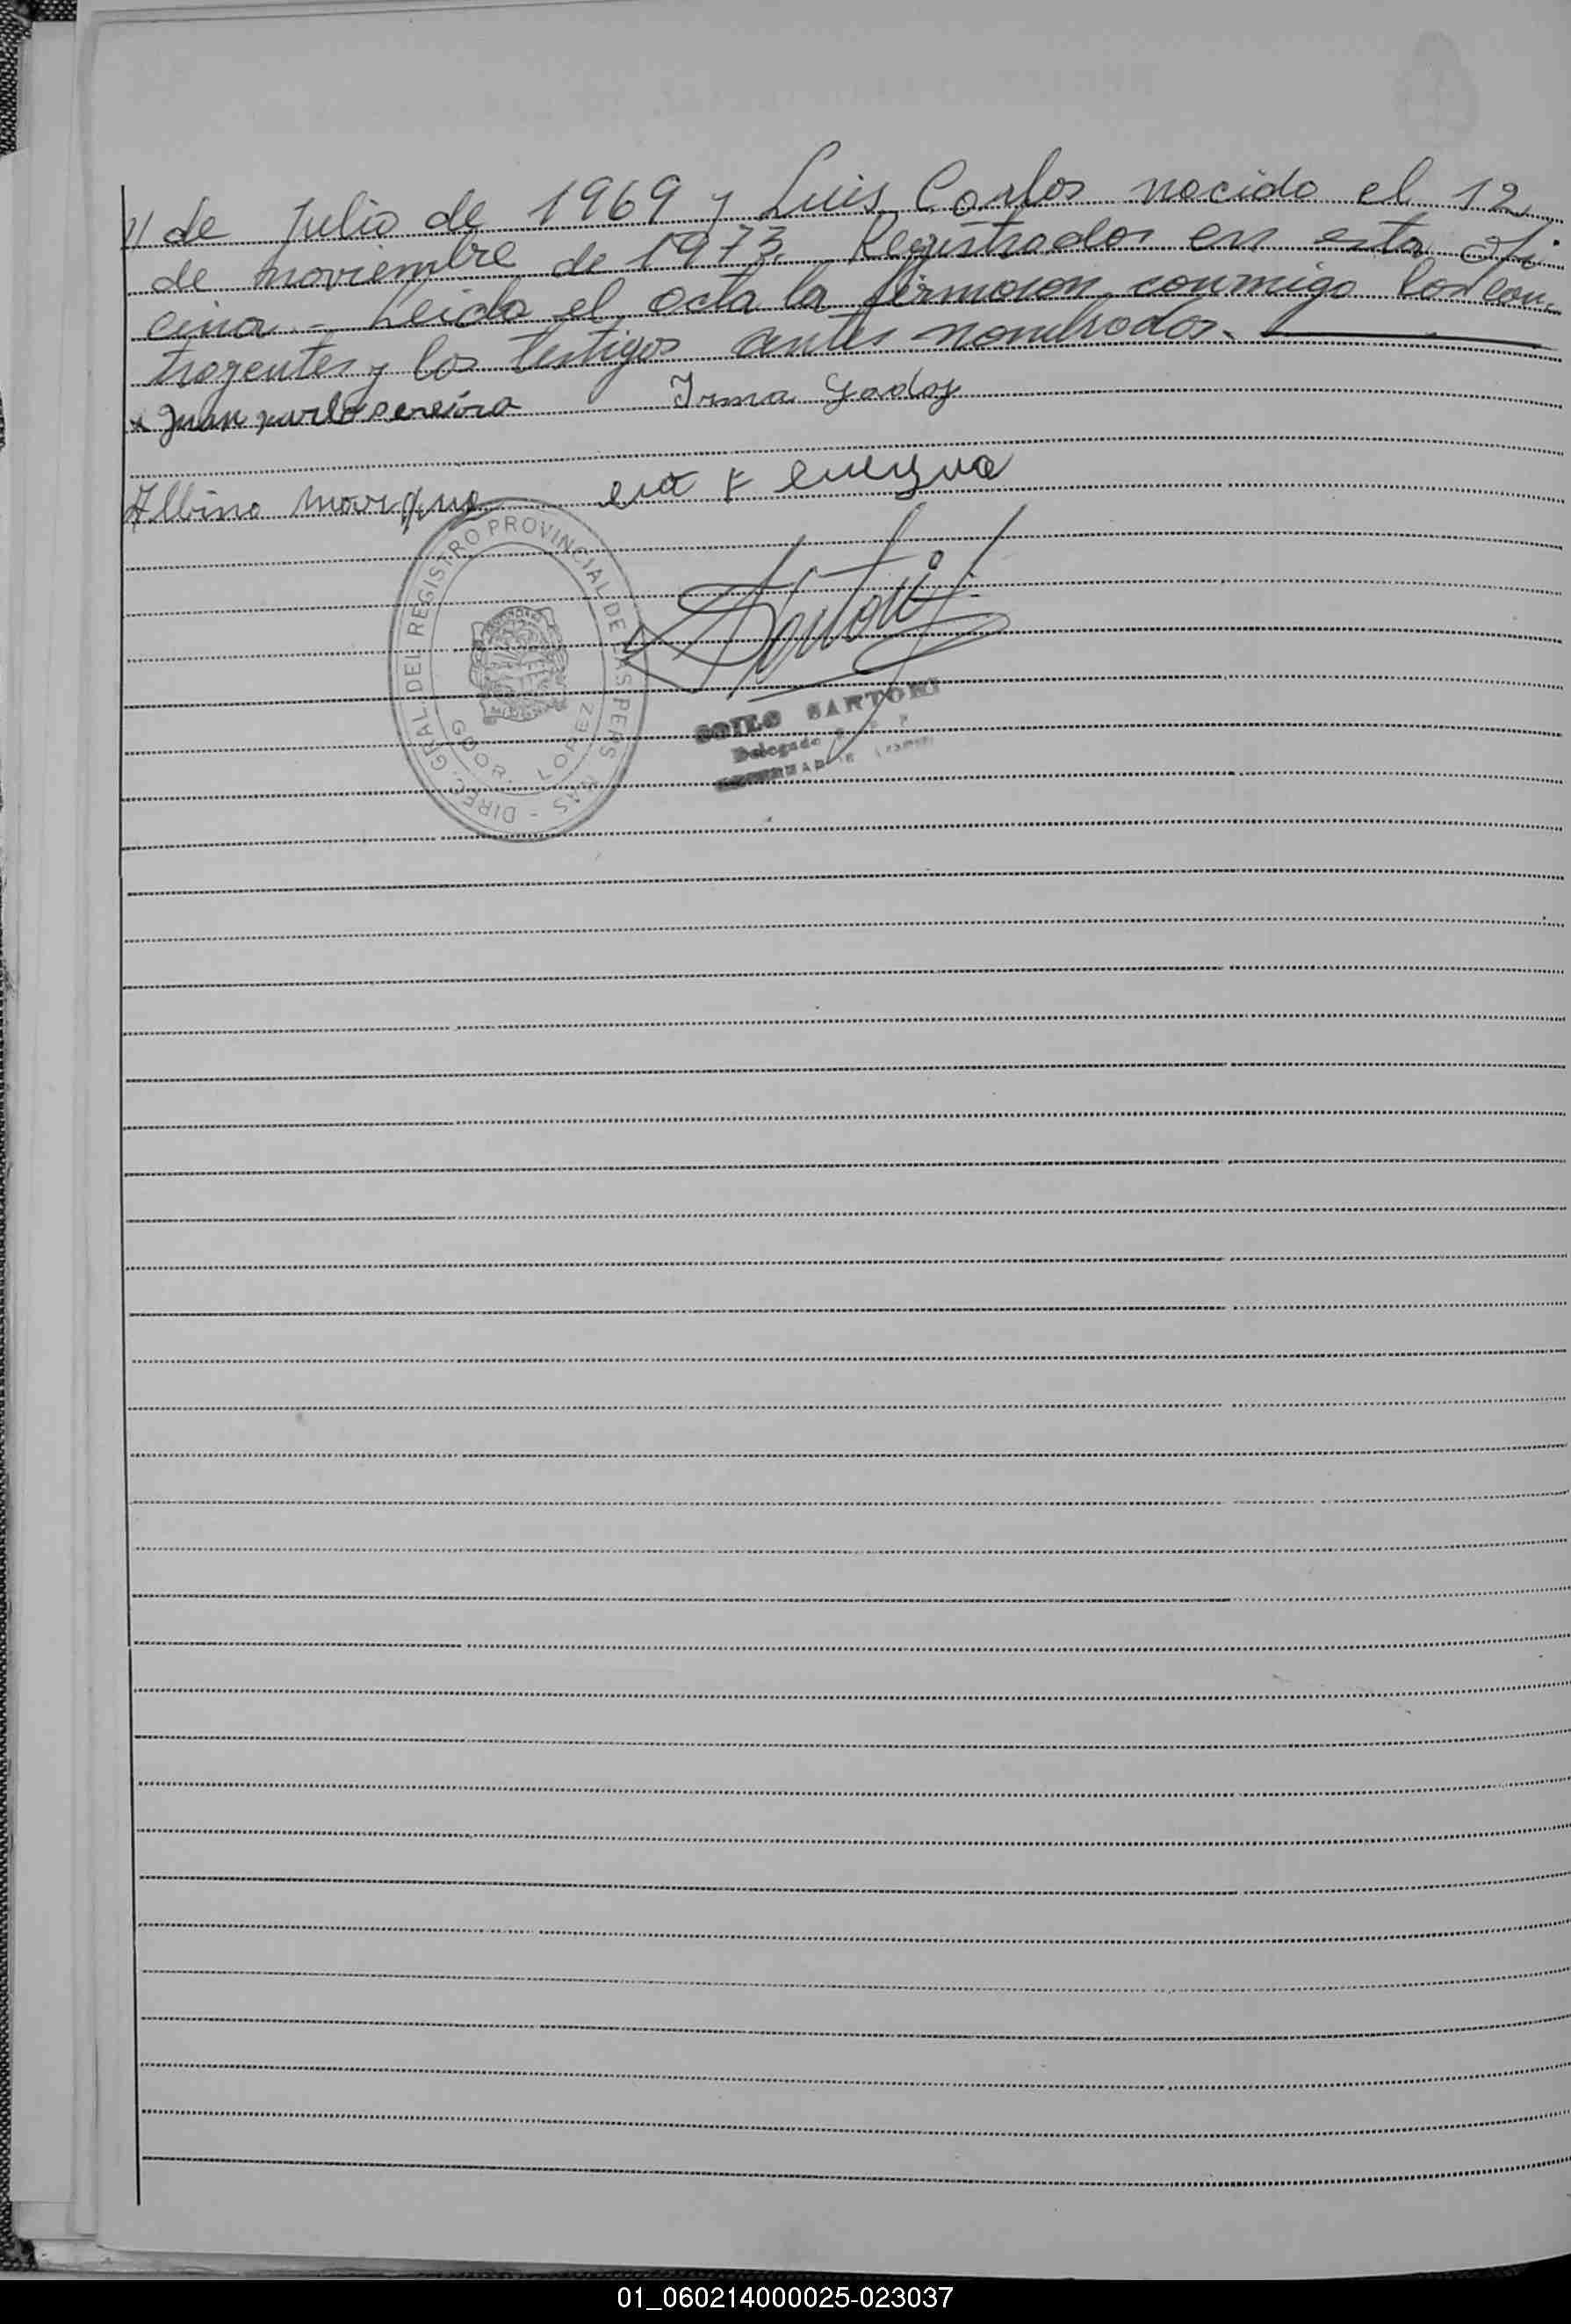 // de Julio de 1969 y Luis Carlos nacido el 12
de noviembre de 1973. Registrados en esta Ofi-
cina.- Leida el acta la firmaron conmigo los con-
trayentes y los testigos antes nombrados.-
Juan Pereira
Irma Godoy
Albino
DIREC. GRAL. DEL REGISTRO PROVINCIAL DE LAS PERSONAS -
GDOR. LOPEZ
Sartori
SOILO SARTORI
Delegado
01_060214000025-023037